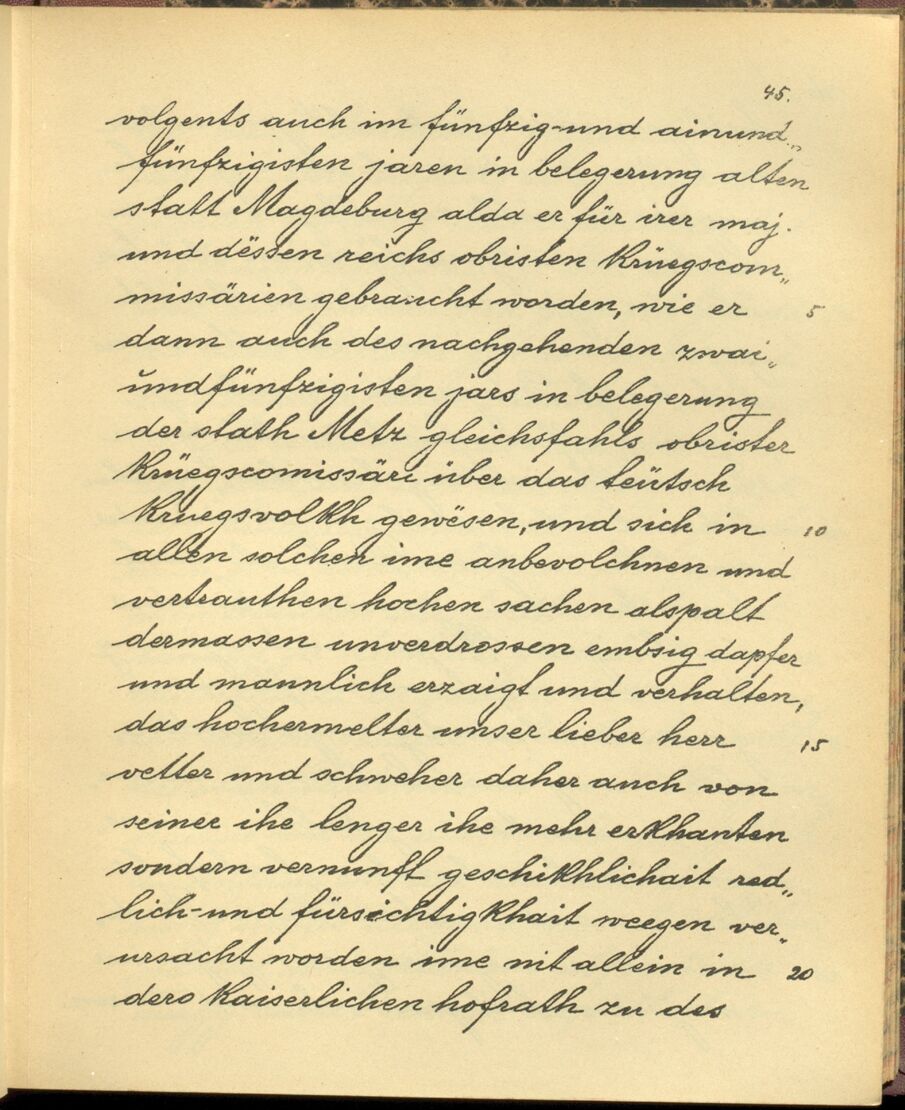 45.
volgents auch im fünfzig-und ainund„
fünfzigisten jaren in belegerung alten
statt Magdeburg alda er für irer maj.
und dëssen reichs obristen Krüegscom„
missärien gebraucht worden, wie er 5
dann auch des nachgehenden zwai„
undfünfzigisten jars in belegerung
der stath Metz gleichsfahls obrister
Krüegscomissäri über das teütsch
Kruegsvolkh gewësen, und sich in 10
allen solchen ime anbevolchnen und
vertrauthen hochen sachen alspalt
dermassen unverdrossen embsig dapfer
und mannlich erzaigt und verhalten,
das hochermelter unser lieber herr 15
vetter und schweher daher auch von
seiner ihe lenger ihe mehr erkhanten
sondern vernunft geschikhlichait red„
lich-und fürsichtigkhait weegen ver„
ursacht worden ime nit allein in 20
dero Kaiserlichen hofrath zu des